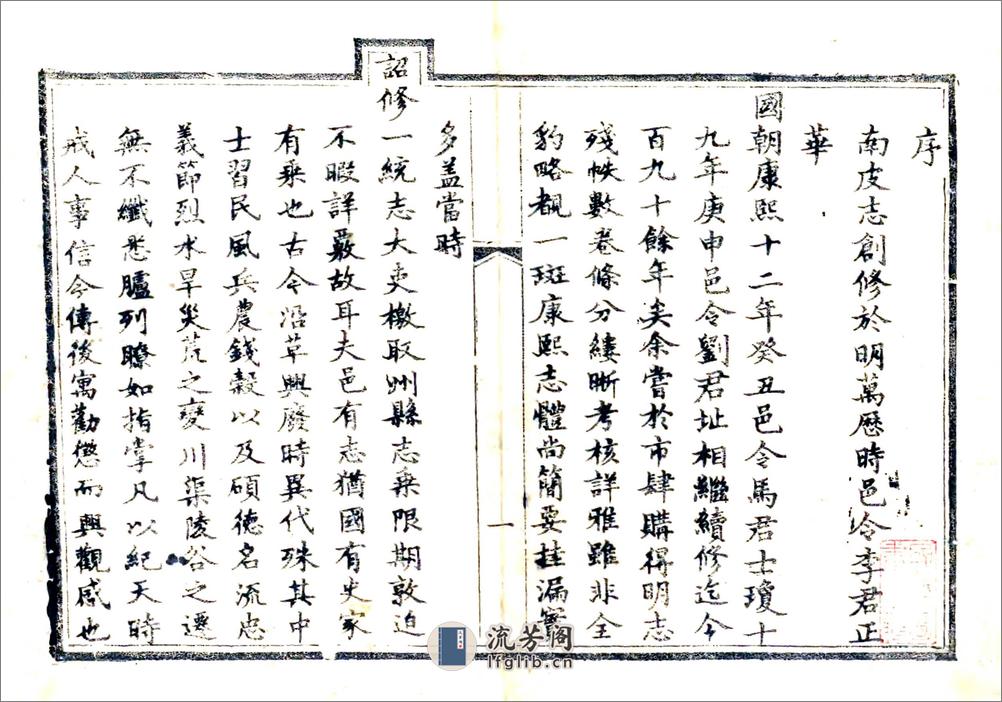 序
南皮志創修於明萬歷時邑令李君正
華
國朝康熙十二年癸丑邑令馬君士瓊十
九年庚申邑令劉君址相繼續修迄今
百九十餘年矣余嘗於市肆購得明志
殘帙數卷條分縷晰考核詳雅雖非全
豹略覩一斑康熙志體尚簡要挂漏實
一
多蓋當時
詔修一統志大吏檄取州縣志乘限期敦迫
不暇詳覈故耳夫邑有志猶國有史家
有乘也古今沿革興廢時異代殊其中
士習民風兵農錢穀以及碩德名流忠
義節烈水旱災荒之變川渠陵谷之遷
無不纖悉臚列瞭如指掌凡以紀天時
戒人事信今傳後寓勸懲而興觀感也
流芳阁
lfglib.cn